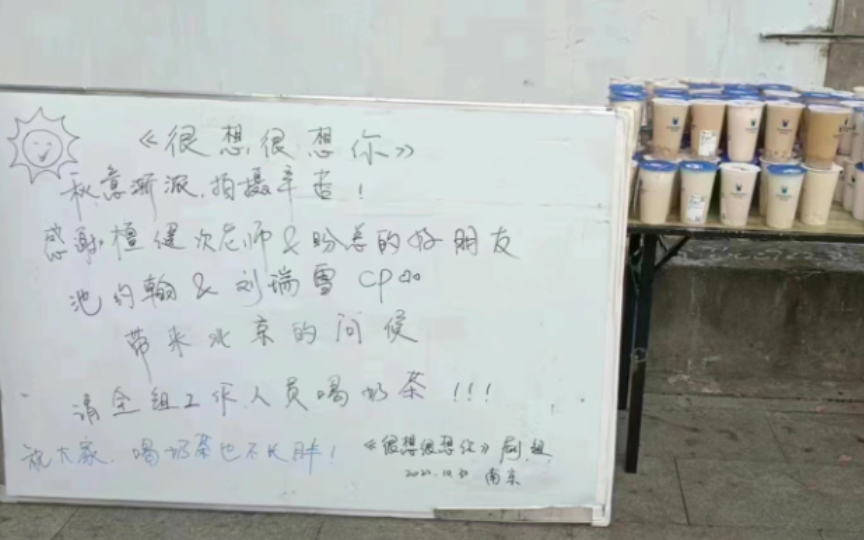 《很想很想你》
秋意渐派,拍摄辛苦!
感谢檀健次老师&盼总的好朋友
池约翰&刘瑞雪CP
带来北京的问候
请全组工作人员喝奶茶!!!
祝大家,喝奶茶也不长胖!
《很想很想你》剧组
南京